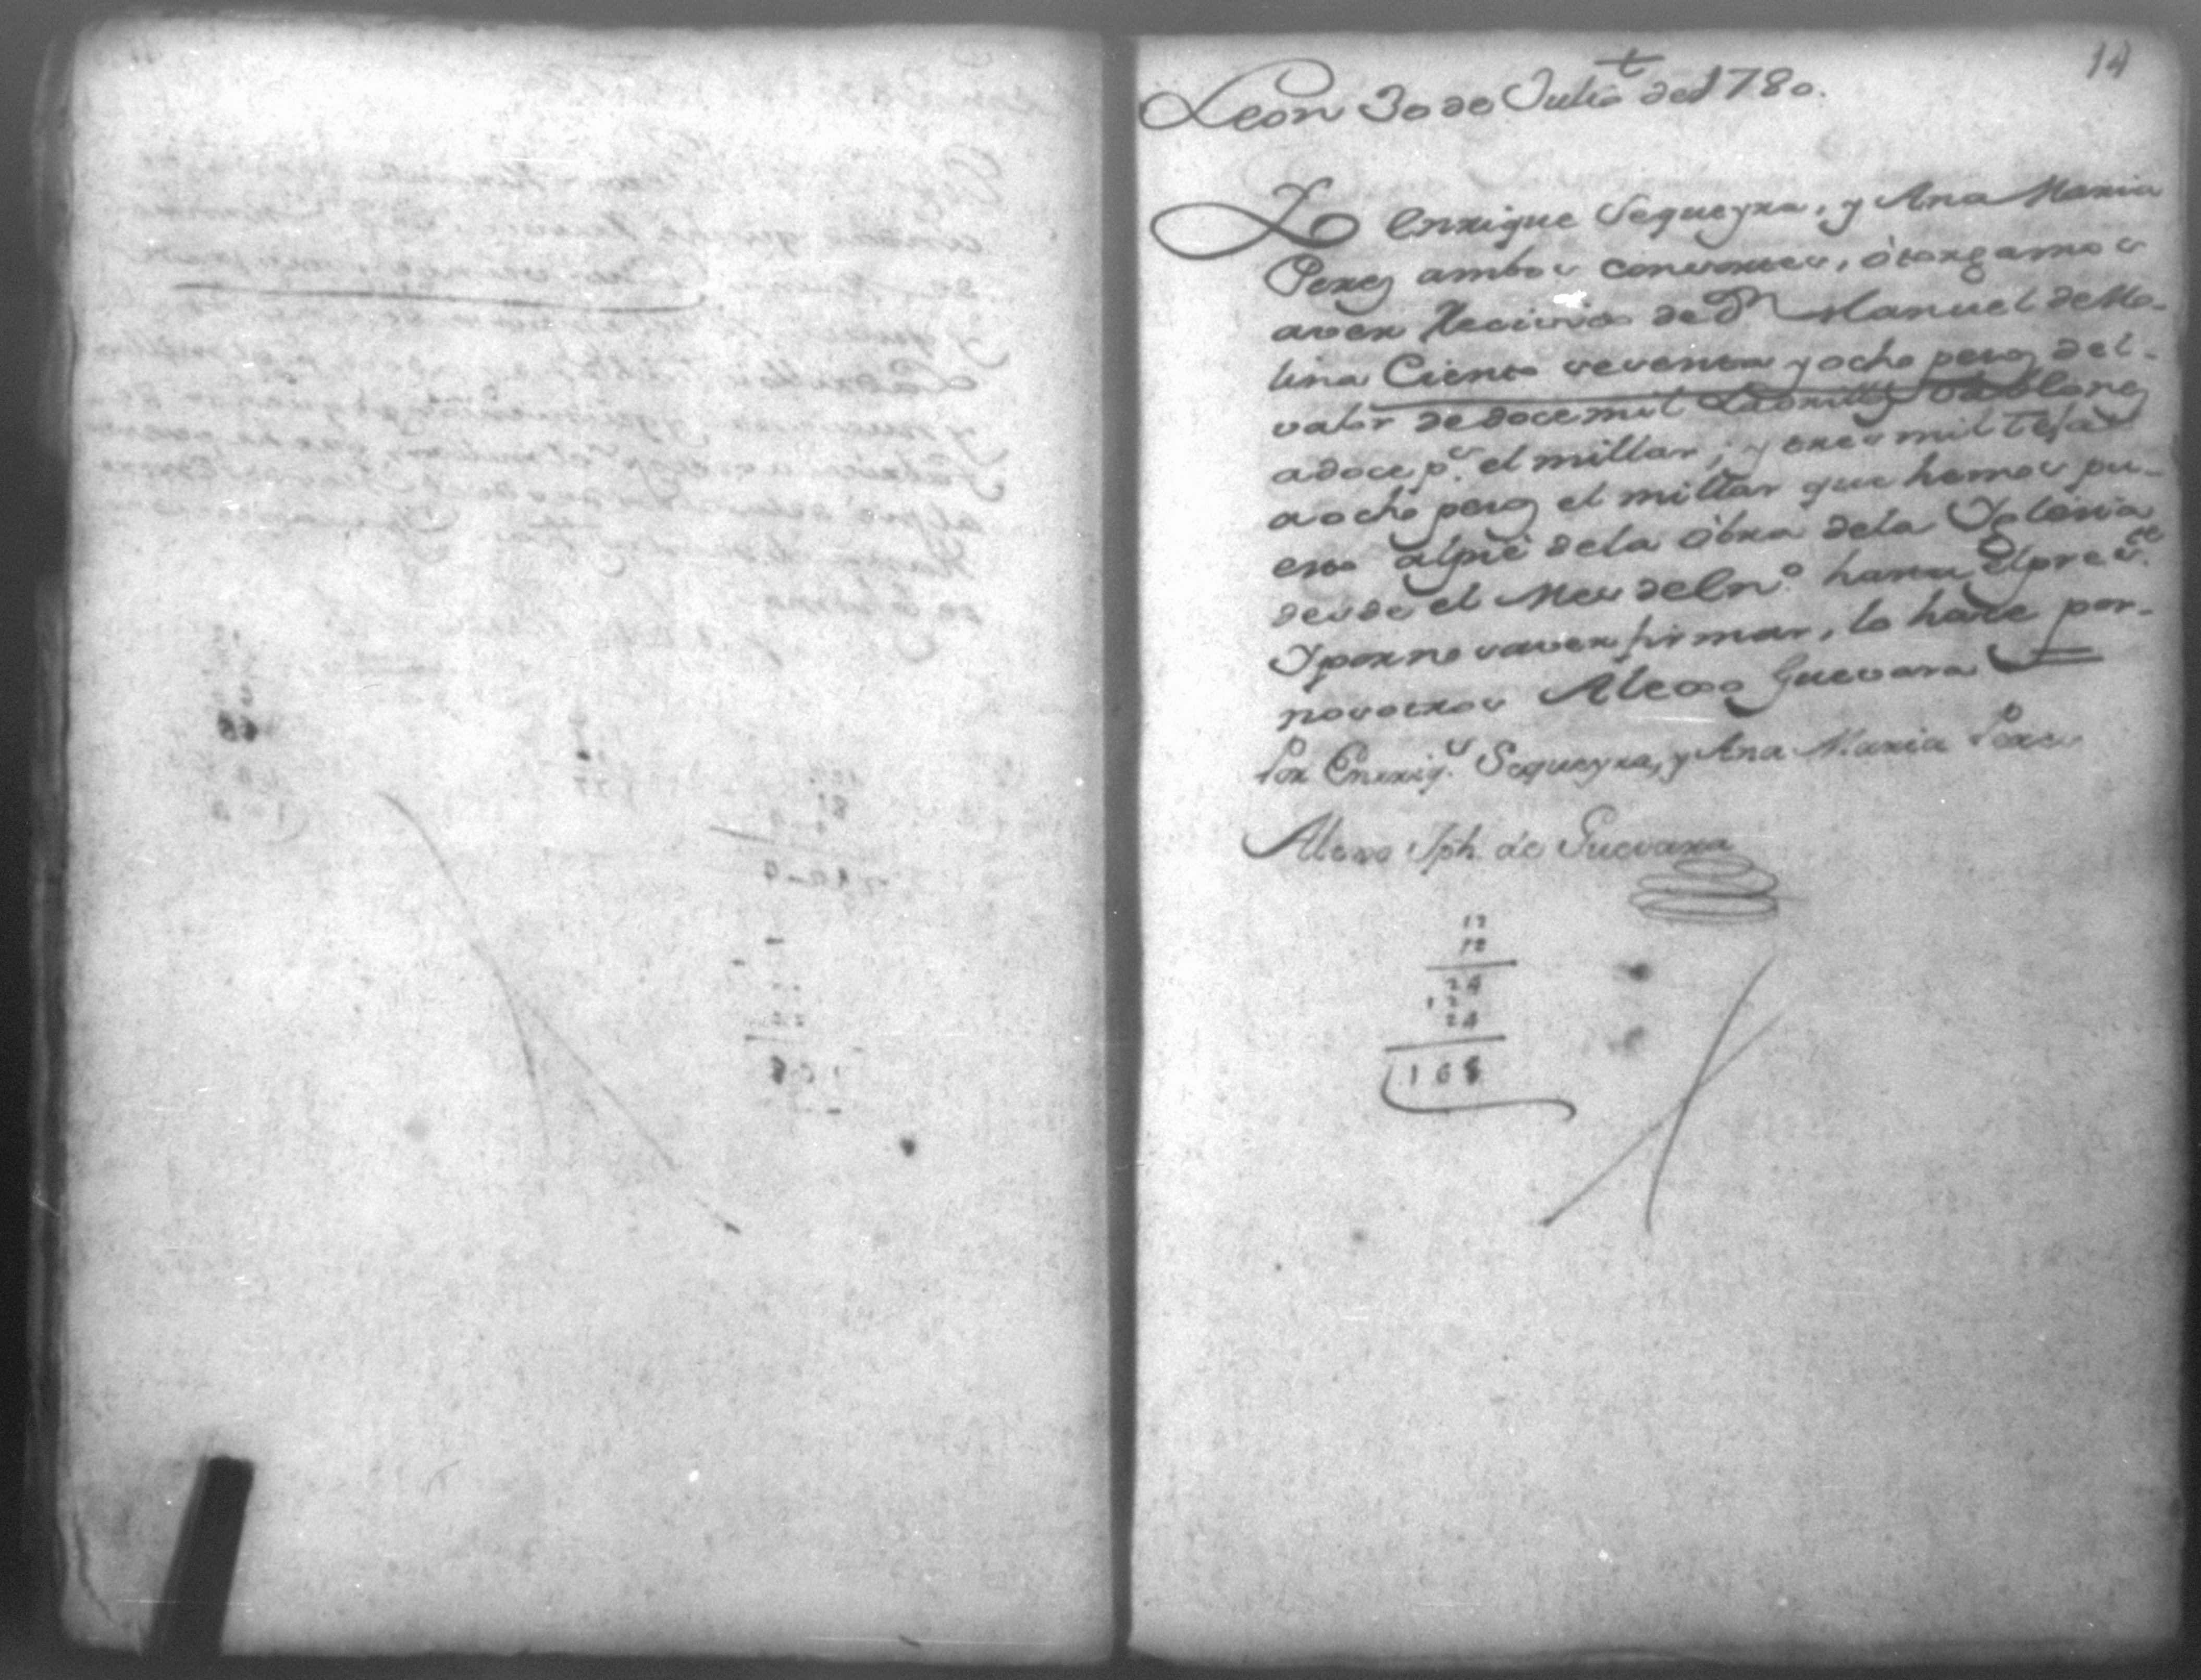 14
Leon 30 de Julio de 1780.
Yo Enrique Sequeyra, y Ana Maria
Perez ambos consortes, otorgamos
aver Recivido de Dn Manuel de Mo-
lina Ciento sesenta y ocho pesos del
valor de doce mil Ladrillos
a doce ps. el millar; y tres mil tejas
a ocho pesos el millar que hemos pu-
esto al pie de la obra de la Yglesia
desde el Mes de Enº. hasta el preste.
Y por no saver firmar, lo hace por-
nosotros Alexo Guevara
Por Enrriqe. Sequeyra, y Ana Maria Perez
Alexo Jph. de Guevara
12
12
24
12
24
168